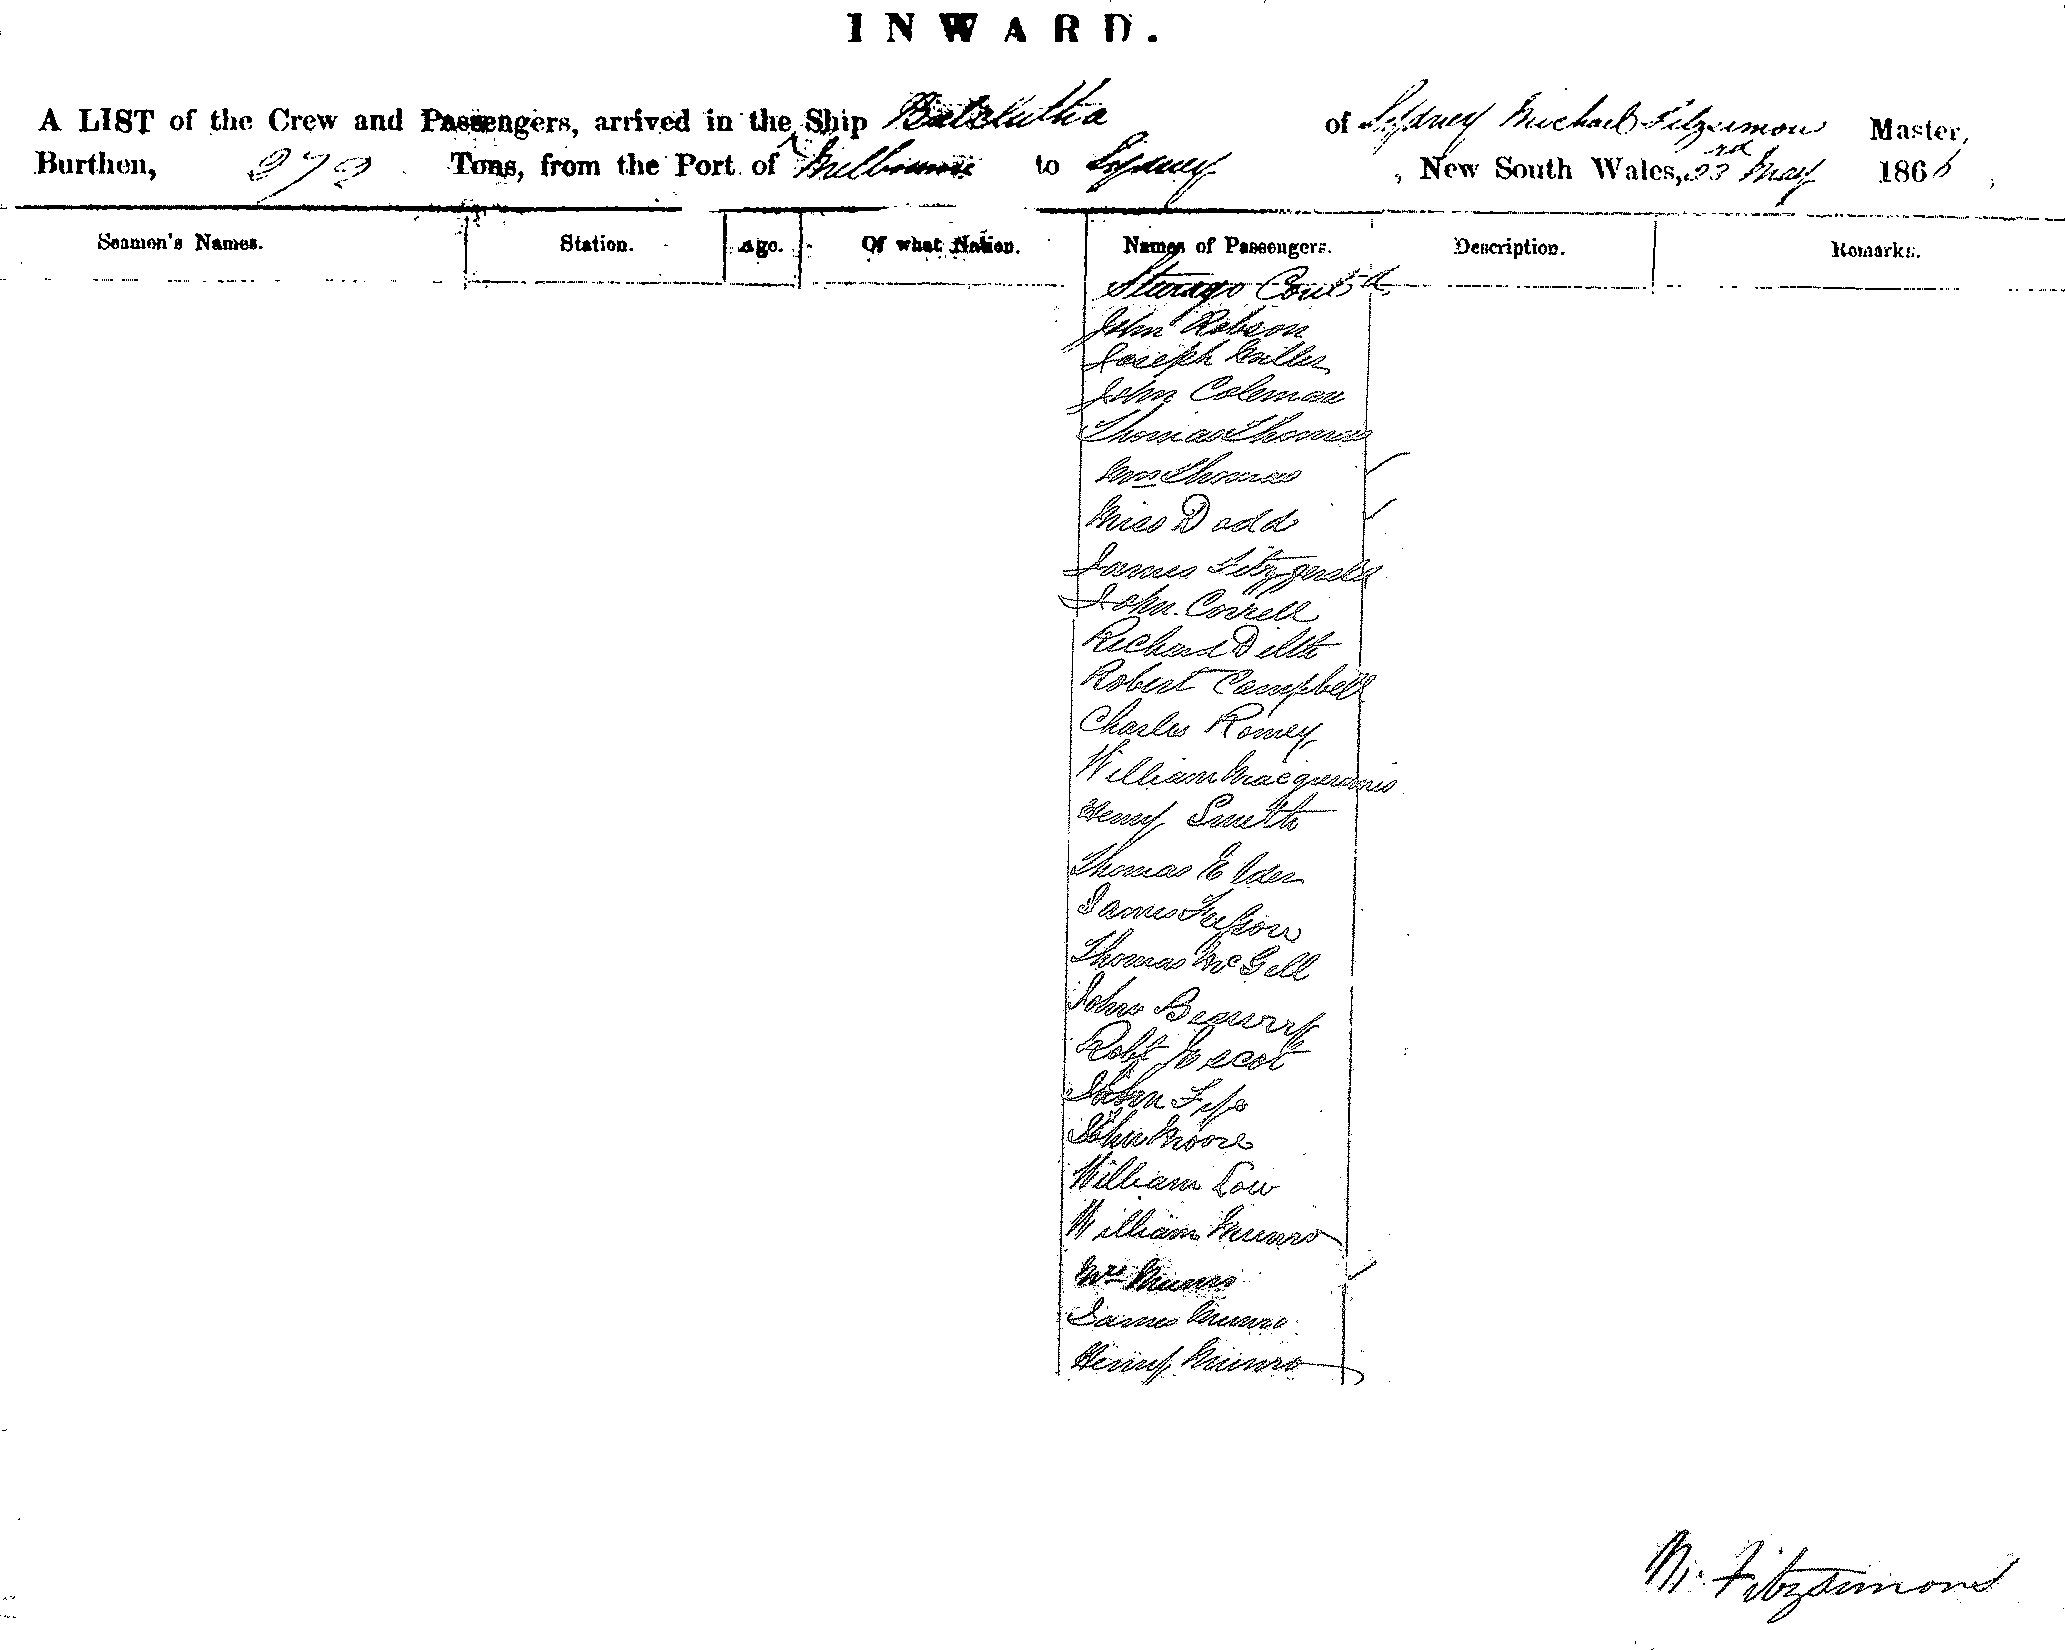 INWARD.
A LIST of the Crew and Passengers, arrived in the Ship Balclutha of Sydney Michael Fitzsimon Master,
Burthen, 272 Tons, from the Port of Melbourne to Sydney, New South Wales, 23rd May 1866,
Seamen's Names. Station. Age. Of what Nation. Names of Passengers. Description. Remarks.
Steerage Cont'd
John Robson
Joseph Miller
John Coleman
Thomas Thomas
Mrs Thomas
Miss Dodd
James Fitzgerald
John Correll
Richard
Robert Campbell
Charles Romey
William
Henry Smith
Thomas Elder
James
Thomas McGill
John
Robt
John Fife
John Moore
William Low
William Munro
Mrs Munro
James Munro
Henry Munro
M. Fitzsimons